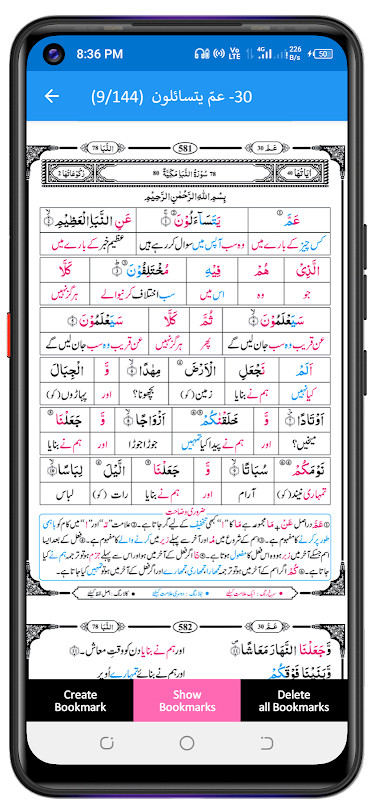 8:36 PM VoLTE 4G 226 B/s 50
30- عمّ يتسائلون (9/144)
اَلنَّبَا 78 581 عَمَّ 30
رُكُوْعَاتُهَا 2 78 سُوْرَةُ النَّبَاِ مَكِّيَّةٌ 80 اٰيَاتُهَا 40
بِسْمِ اللهِ الرَّحْمٰنِ الرَّحِيْمِ
عَمَّ يَتَسَآءَلُوْنَ عَنِ النَّبَاِ الْعَظِيْمِ
کس چیز کے بارے میں وہ سب آپس میں سوال کر رہے ہیں عظیم خبر کے بارے میں
الَّذِيْ هُمْ فِيْهِ مُخْتَلِفُوْنَ كَلَّا
جو وہ اس میں سب اختلاف کرنیوالے ہرگز نہیں
سَيَعْلَمُوْنَ ثُمَّ كَلَّا سَيَعْلَمُوْنَ
عن قریب وہ سب جان لیں گے پھر ہرگز نہیں عن قریب وہ سب جان لیں گے
اَلَمْ نَجْعَلِ الْاَرْضَ مِهٰدًا وَّ الْجِبَالَ
کیا نہیں ہم نے بنایا زمین (کو) بچھونا؟ اور پہاڑوں (کو)
اَوْتَادًا وَّ خَلَقْنٰكُمْ اَزْوَاجًا وَّ جَعَلْنَا
میخیں؟ اور ہم نے پیدا کیا تمہیں جوڑا جوڑا اور ہم نے بنایا
نَوْمَكُمْ سُبَاتًا وَّ جَعَلْنَا الَّيْلَ لِبَاسًا
تمہاری نیند (کو) آرام اور ہم نے بنایا رات (کو) لباس
ضروری وضاحت
اَلنَّبَا 78 582 عَمَّ 30
وَّجَعَلْنَا النَّهَارَ مَعَاشًا اور ہم نے بنایا دن کو وقتِ معاش۔
وَّبَنَيْنَا فَوْقَكُمْ اور ہم نے بنائے تمہارے اُوپر
Create Bookmark
Show Bookmarks
Delete all Bookmarks